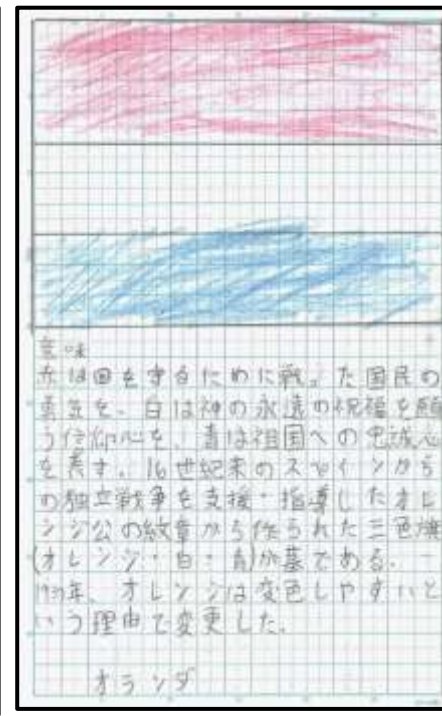 意味
赤は国を守るために戦った国民の
勇気を、白は神の永遠の祝福を願
う信仰心を、青は祖国への忠誠心
を表す。16世紀末のスペインから
の独立戦争を支援・指導したオレ
ンジ公の紋章から作られた三色旗
(オレンジ・白・青)が基である。
年、オレンジは変色しやすいと
いう理由で変更した。
オランダ